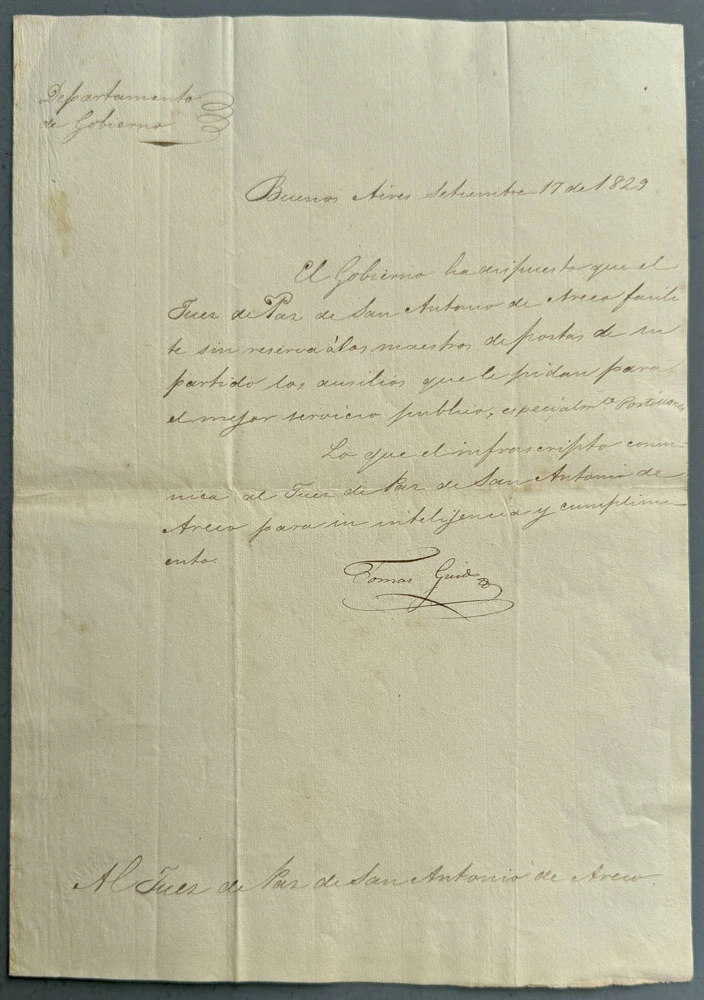 Departamento
de Gobierno
Buenos Aires Setiembre 17 de 1829
El Gobierno ha dispuesto que el
Juez de Paz de San Antonio de Areco facili
te sin reserva á los maestros de postas de su
partido los ausilios que le pidan para
el mejor servicio publico, especialm.te
Lo que el infrascripto comu=
nica al Juez de Paz de San Antonio de
Areco para su intelijencia y cumplimi=
ento.
Tomas Guido
Al Juez de Paz de San Antonio de Areco